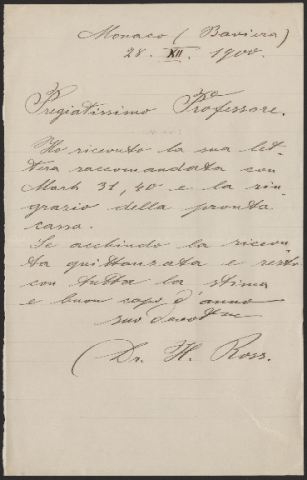 Monaco (Baviera)
28. XII. 1900.
Pregiatissimo Professore.
Ho ricevuto la sua let-
tera raccomandata con
Mark 31,40 e la rin-
grazio della pronta
cassa.
Le acchiudo la ricevu-
ta quittanzata e resto
con tutta la stima
e buon capo d'anno
suo devotmo
(Dr. H. Ross.